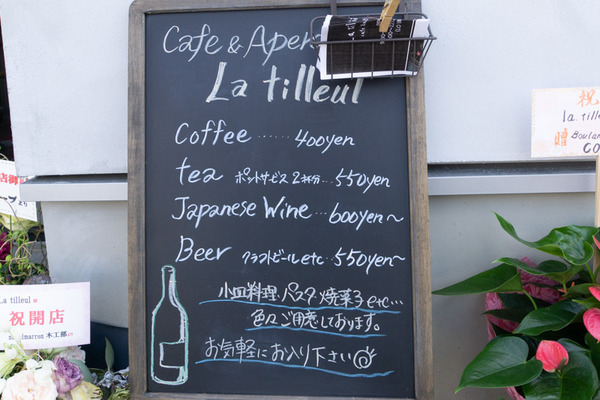 Cafe & Aper
La tilleul
Coffee ...... 400yen
tea ポットサービス2杯分... 550yen
Japanese Wine... 600yen〜
Beer クラフトビール etc... 550yen〜
小皿料理・パスタ・焼菓子 etc...
色々ご用意しております。
お気軽にお入り下さい
La tilleul
祝開店
木工部
祝
la. tille
贈
Boulan